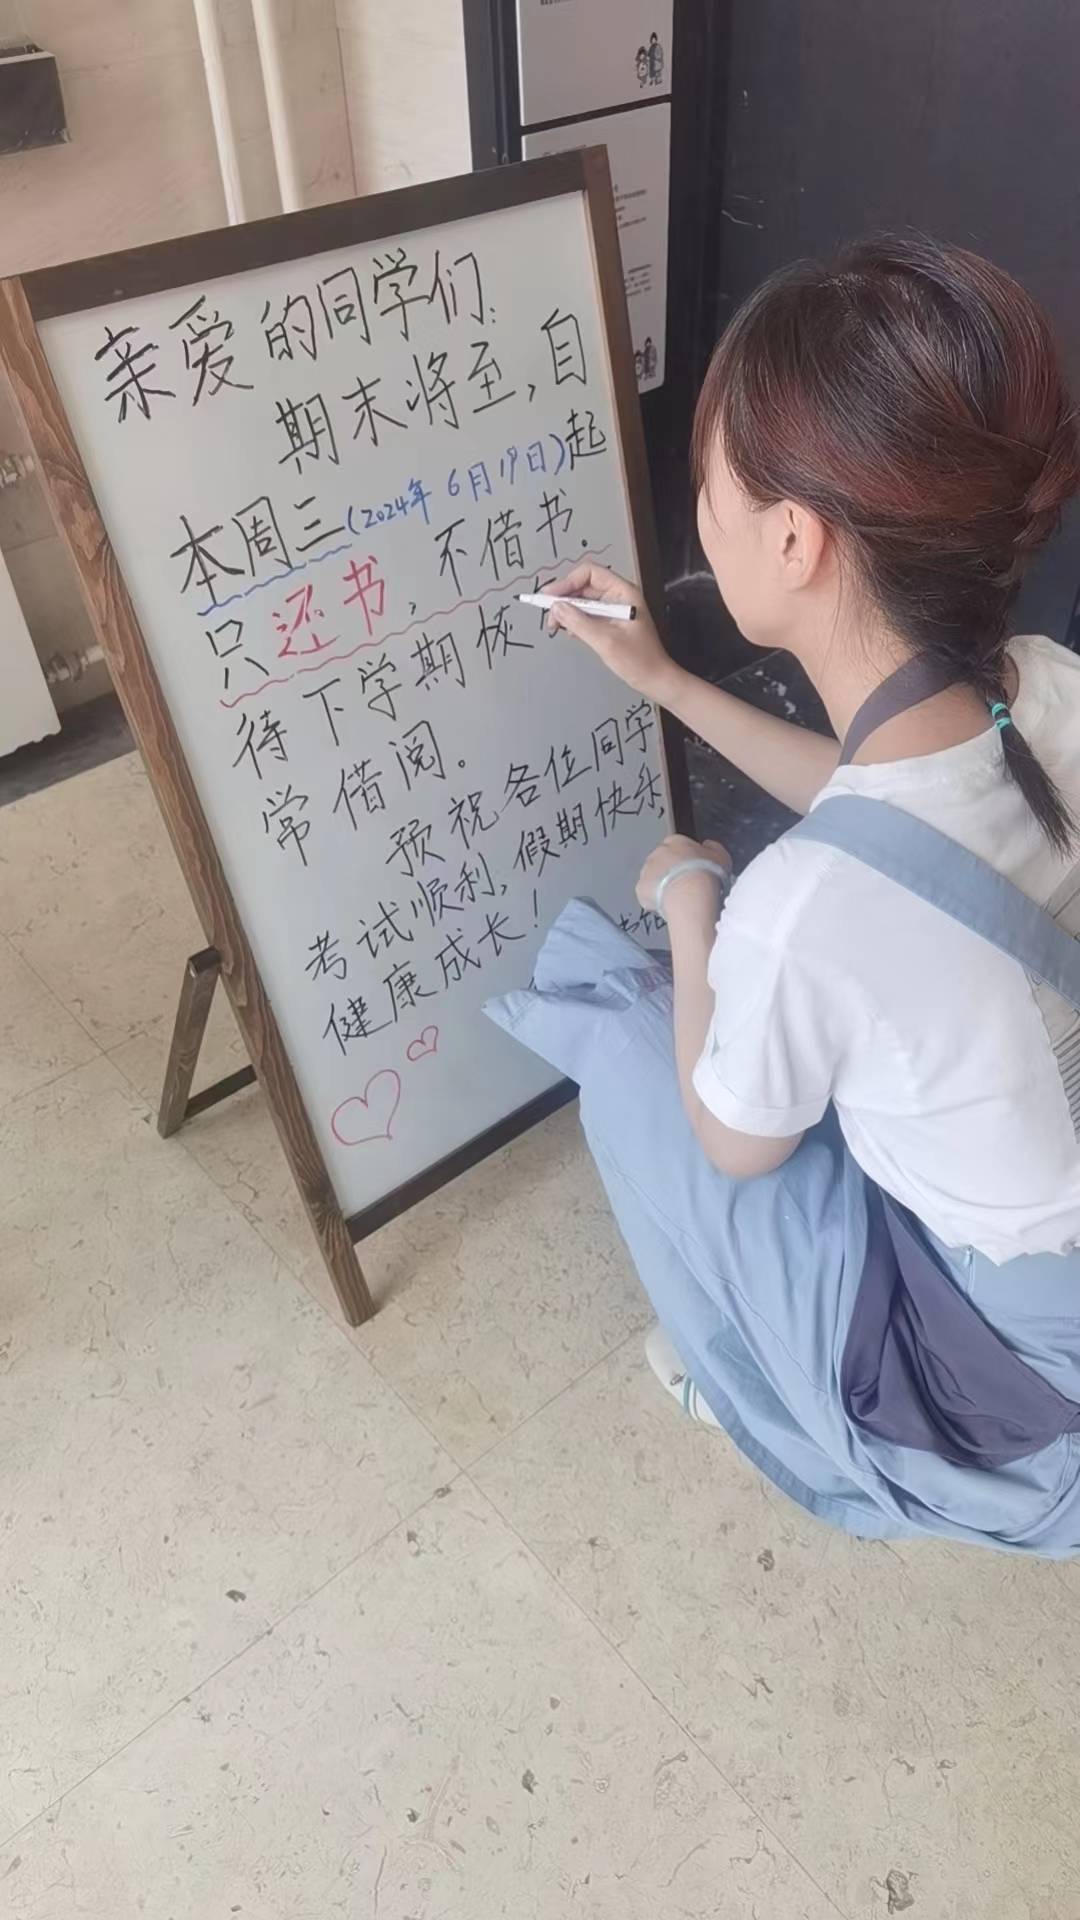 亲爱的同学们:
期末将至,自
本周三(2024年 6月19日)起
只还书,不借书.
待下学期恢复
常借阅。
预祝各位同学
考试顺利,假期快乐,
健康成长!
书馆